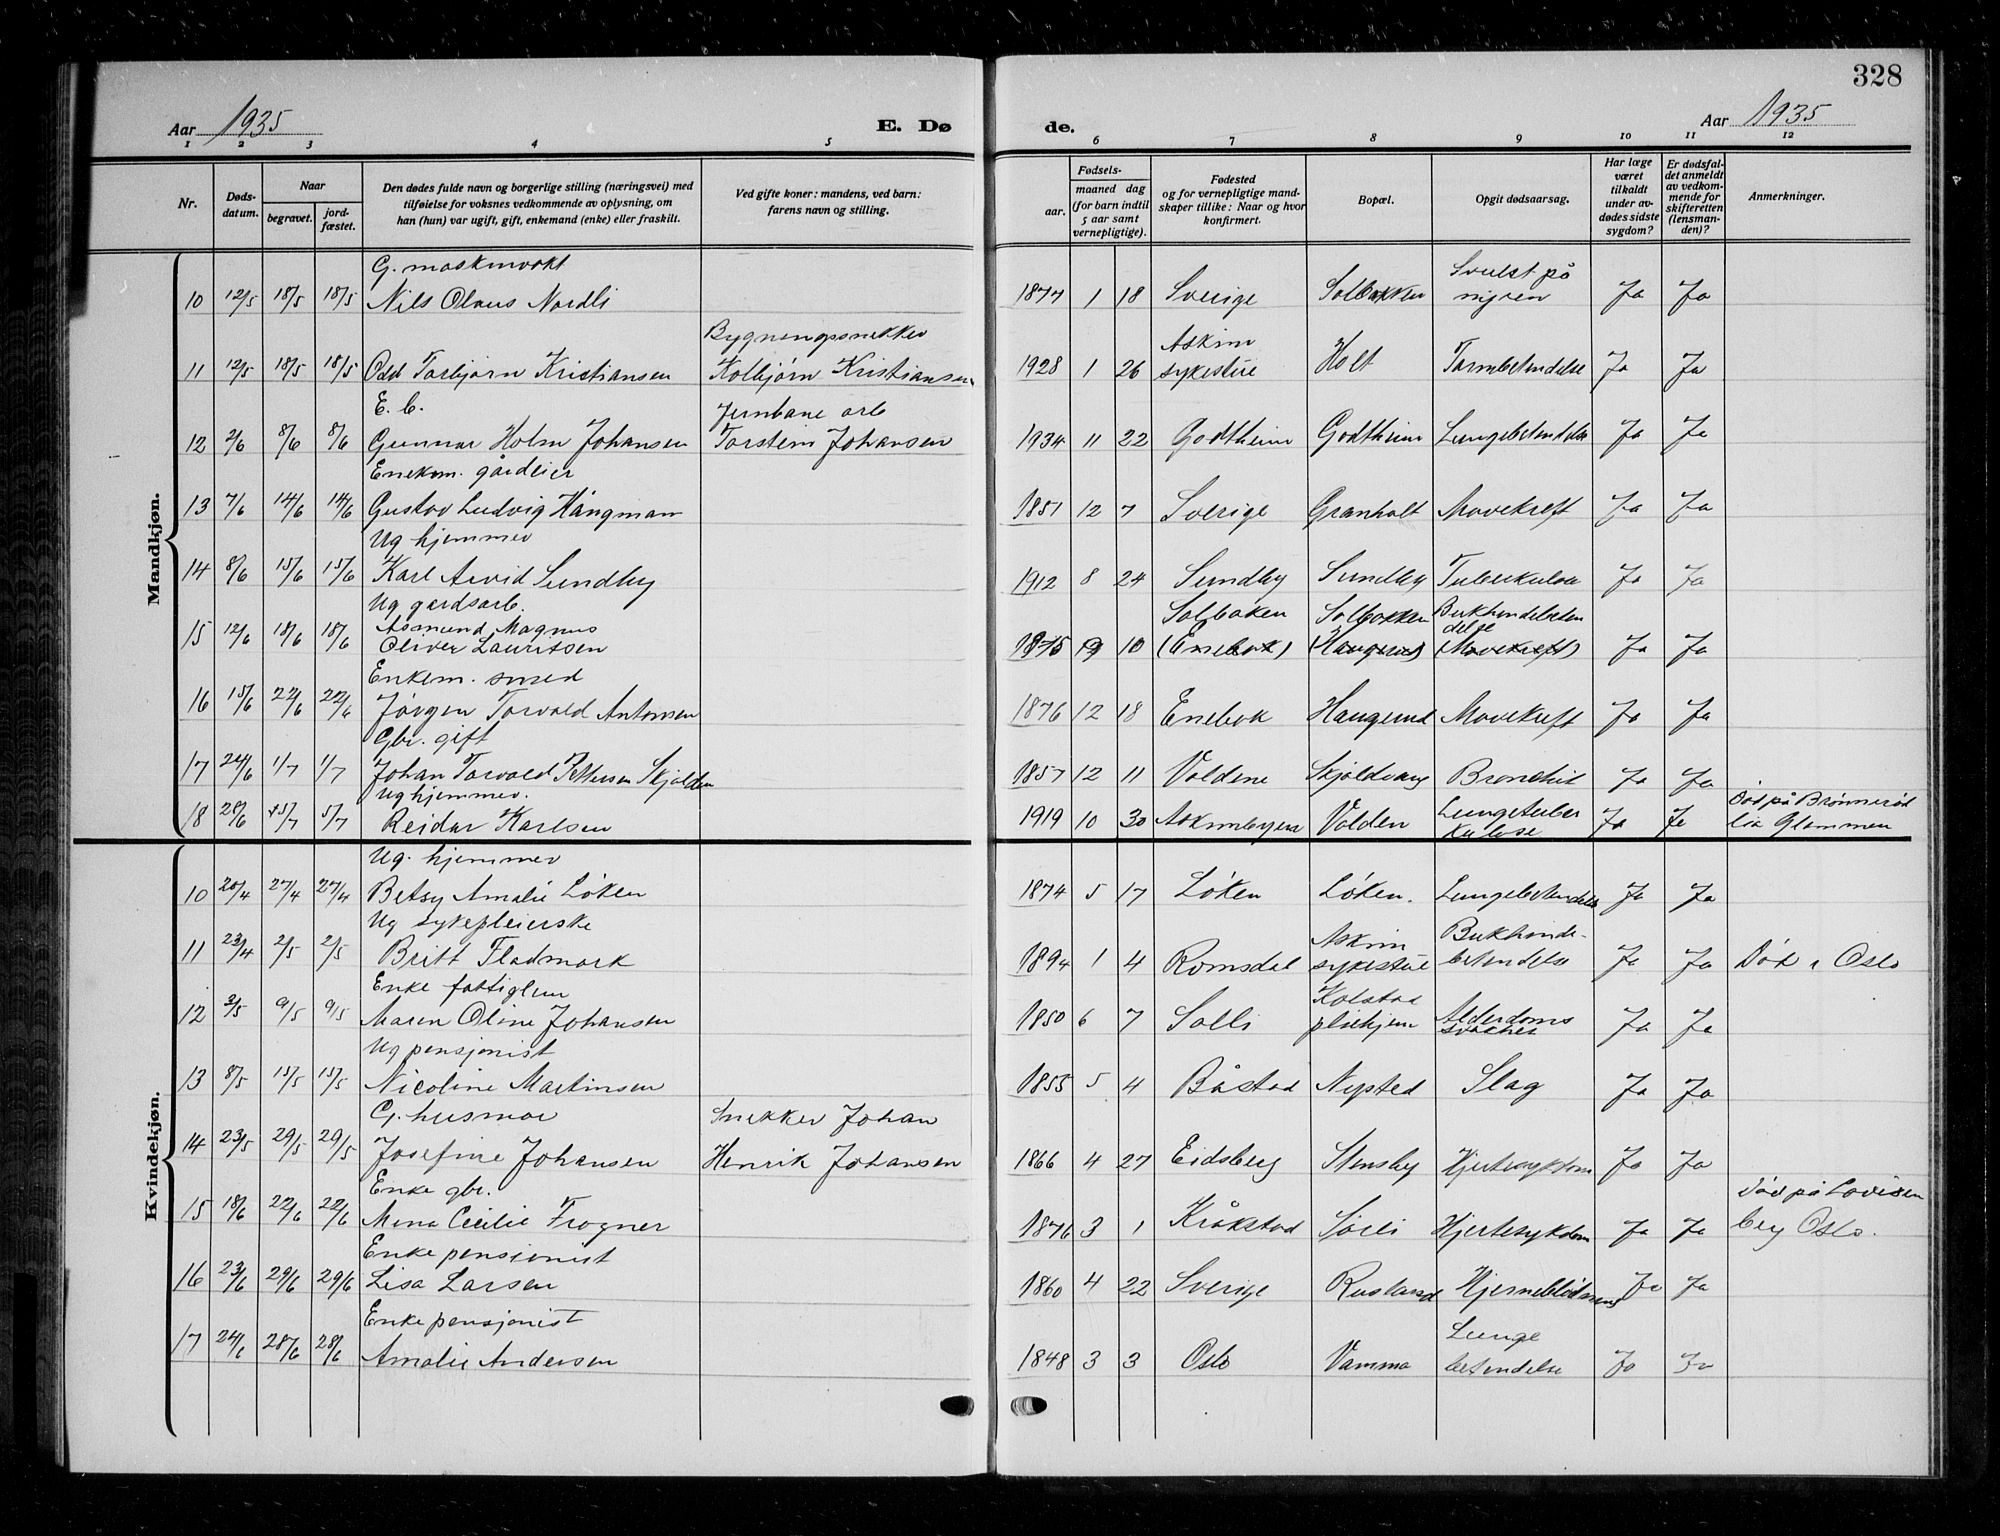 328
Aar 1935
E. Dø
de.
Aar 1935
1 2 3 4 5
6 7 8 9 10 11 12
Nr.
Døds-
datum.
Naar
begravet.
jord-
fæstet.
Den dødes fulde navn og borgerlige stilling (næringsvei) med
tilføielse for voksnes vedkommende av oplysning, om
han (hun) var ugift, gift, enkemand (enke) eller fraskilt.
Ved gifte koner: mandens, ved barn:
farens navn og stilling.
Fødsels-
aar.
maaned dag
(for barn indtil
5 aar samt
vernepligtige).
Fødested
og for vernepligtige mand-
skaper tillike: Naar og hvor
konfirmert.
Bopæl.
Opgit dødsaarsag.
Har læge
været
tilkaldt
under av-
dødes sidste
sygdom?
Er dødsfal-
det anmeldt
av vedkom-
mende for
skifteretten
(lensman-
den)?
Anmerkninger.
Mandkjøn.
G. maskinvakt
10 12/5 18/5 18/5 Nils Olaus Nordli 1877 1 18 Sverige Solbakken Svulst på
nyren Ja Ja
Bygningssnekker
11 12/5 18/5 18/5 Odd Torbjørn Kristiansen Kolbjørn Kristiansen 1928 1 26 Askim
sykestue Holt Tarmbetendelse Ja Ja
E. b. Jernbane arb
12 2/6 8/6 8/6 Gunnar Holm Johansen Torstein Johansen 1934 11 22 Godtheim Godtheim Lungebetendelse Ja Ja
Enekm. gårdeier
13 7/6 14/6 14/6 Gustav Ludvig Hångman 1851 12 7 Sverige Granholt Mavekreft Ja Ja
Ug hjemmev
14 8/6 15/6 15/6 Karl Arvid Sundby 1912 8 24 Sundby Sundby Tuberkulose Ja Ja
Ug gardsarb.
15 12/6 18/6 18/6 Asmund Magnus
Oliver Lauritsen 10 Solbakken
(Enebak) Solbakken
(Haugund) Bukhindebeten
delse
(Mavekreft) Ja Ja
Enkem. smed
16 15/6 22/6 22/6 Jørgen Torvald Antonsen 1876 12 18 Enebak Haugund Mavekreft Ja Ja
Gbr. gift
17 24/6 1/7 1/7 Johan Torvald Pettersen Skjolden 1857 12 11 Voldene Skjoldvang Bronchit Ja Ja
Ug hjemmev.
18 28/6 5/7 5/7 Reidar Karlsen 1919 10 30 Askimbyen Volden Lungetuber
kulose Ja Ja Død på Brønnerød
lia Glommen
Kvindekjøn.
Ug. hjemmev
10 20/4 27/4 27/4 Betsy Amalie Løken 1874 5 17 Løken Løken. Lungebetendelse Ja Ja
Ug sykepleierske
11 23/4 2/5 2/5 Britt Fladmark 1894 1 4 Romsdal Askim
sykestue Bukhinde-
betendelse Ja Ja Død i Oslo
Enke fattiglem
12 3/5 9/5 9/5 Maren Oline Johansen 1850 6 7 Solli Kolstad
pleiehjem Alderdoms
svakhet Ja Ja
Ug pensjonist
13 8/5 15/5 15/5 Nicoline Martinsen 1855 5 4 Båstad Nysted Slag Ja Ja
G. husmor Snekker Johan
14 23/5 29/5 29/5 Josefine Johansen Henrik Johansen 1866 4 27 Eidsberg Stensby Hjertesykdom Ja Ja
Enke gbr.
15 18/6 22/6 22/6 Mina Cecilie Frogner 1876 3 1 Kråkstad Sørli Hjertesykdom Ja Ja Død på Lovisen
berg Oslo.
Enke pensjonist
16 23/6 29/6 29/6 Lisa Larsen 1860 4 22 Sverige Rusland Hjerneblødning Ja Ja
Enke pensjonist
17 24/6 28/6 28/6 Amalie Andersen 1848 3 3 Oslo Vamma Lunge
betendelse Ja Ja